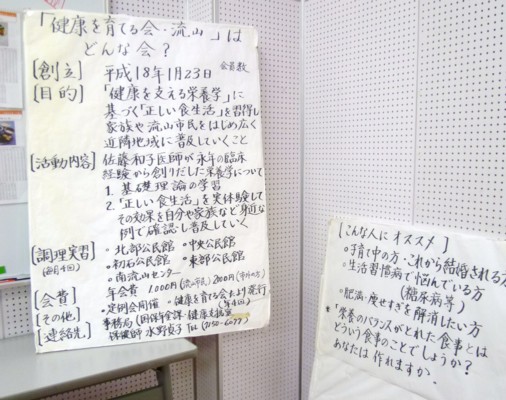 「健康を育てる会・流山」は
どんな会?
[創立] 平成18年1月23日 会員数
[目的] 「健康を支える栄養学」に
基づく「正しい食生活」を習得し
家族や流山市民をはじめ広く
近隣地域に普及していくこと
[活動内容] 佐藤和子医師が永年の臨床
経験から創りだした栄養学について
1. 基礎理論の学習
2.「正しい食生活」を実体験して
その効果を自分や家族など身近な
例で確認し普及していく
[調理実習] ・北部公民館 ・中央公民館
(毎月4回) ・初石公民館 ・東部公民館
・南流山センター
[会費] 年会費 1,000円(流山市民) 2,000円(市外の方)
[その他] ・定例会開催 ・健康を育てる会だより発行
(年4回)
[連絡先] 事務局(国保年金課・健康支援室
保健師 水野貞子 TEL(7150-6077)
[こんな人にオススメ]
・子育て中の方・これから結婚される方
・生活習慣病で悩んでいる方
(糖尿病等)
・肥満・痩せすぎを解消したい方
* 栄養のバランスがとれた食事とは
どういう食事のことでしょうか?
あなたは作れますか.